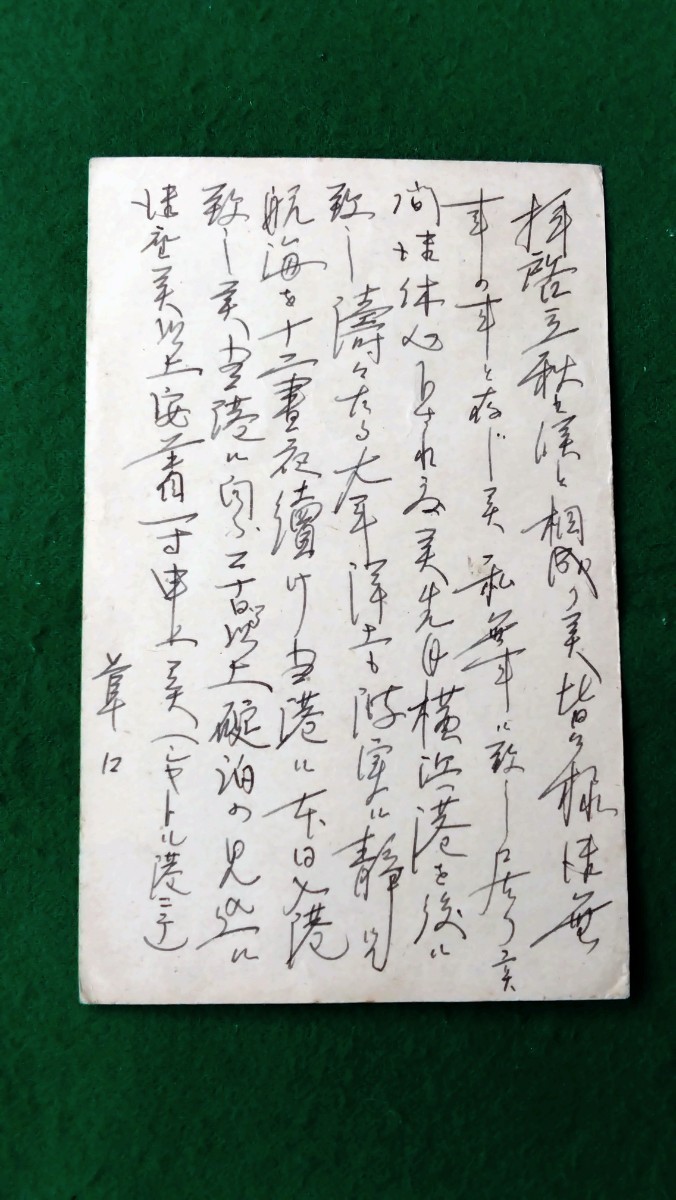 拝啓立秋の候と相成り候皆々様御無
事の事と存じ候 私無事に致し居り候
間御休心下され度候先月横浜港を後に
致し濤々たる太平洋上も誠に静に
航海を十二昼夜続け当港に本日入港
致し候当港に向ふ二十日以上碇泊の見込に
御座候以上安着一寸申上候(シヤトル港ニテ)
草々